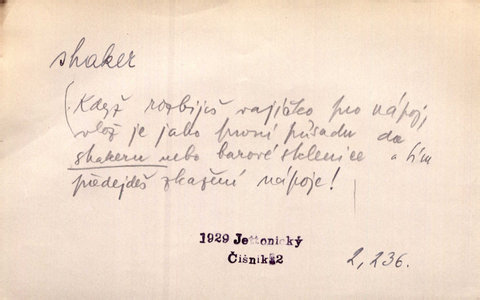 shaker
(Když rozbiješ vajíčko pro nápoj,
vlož je jako první přísadu do
shakeru nebo barové sklenice a tím
předejdeš zkažení nápoje!
1929 Jettonický
Číšník 2
2, 236.